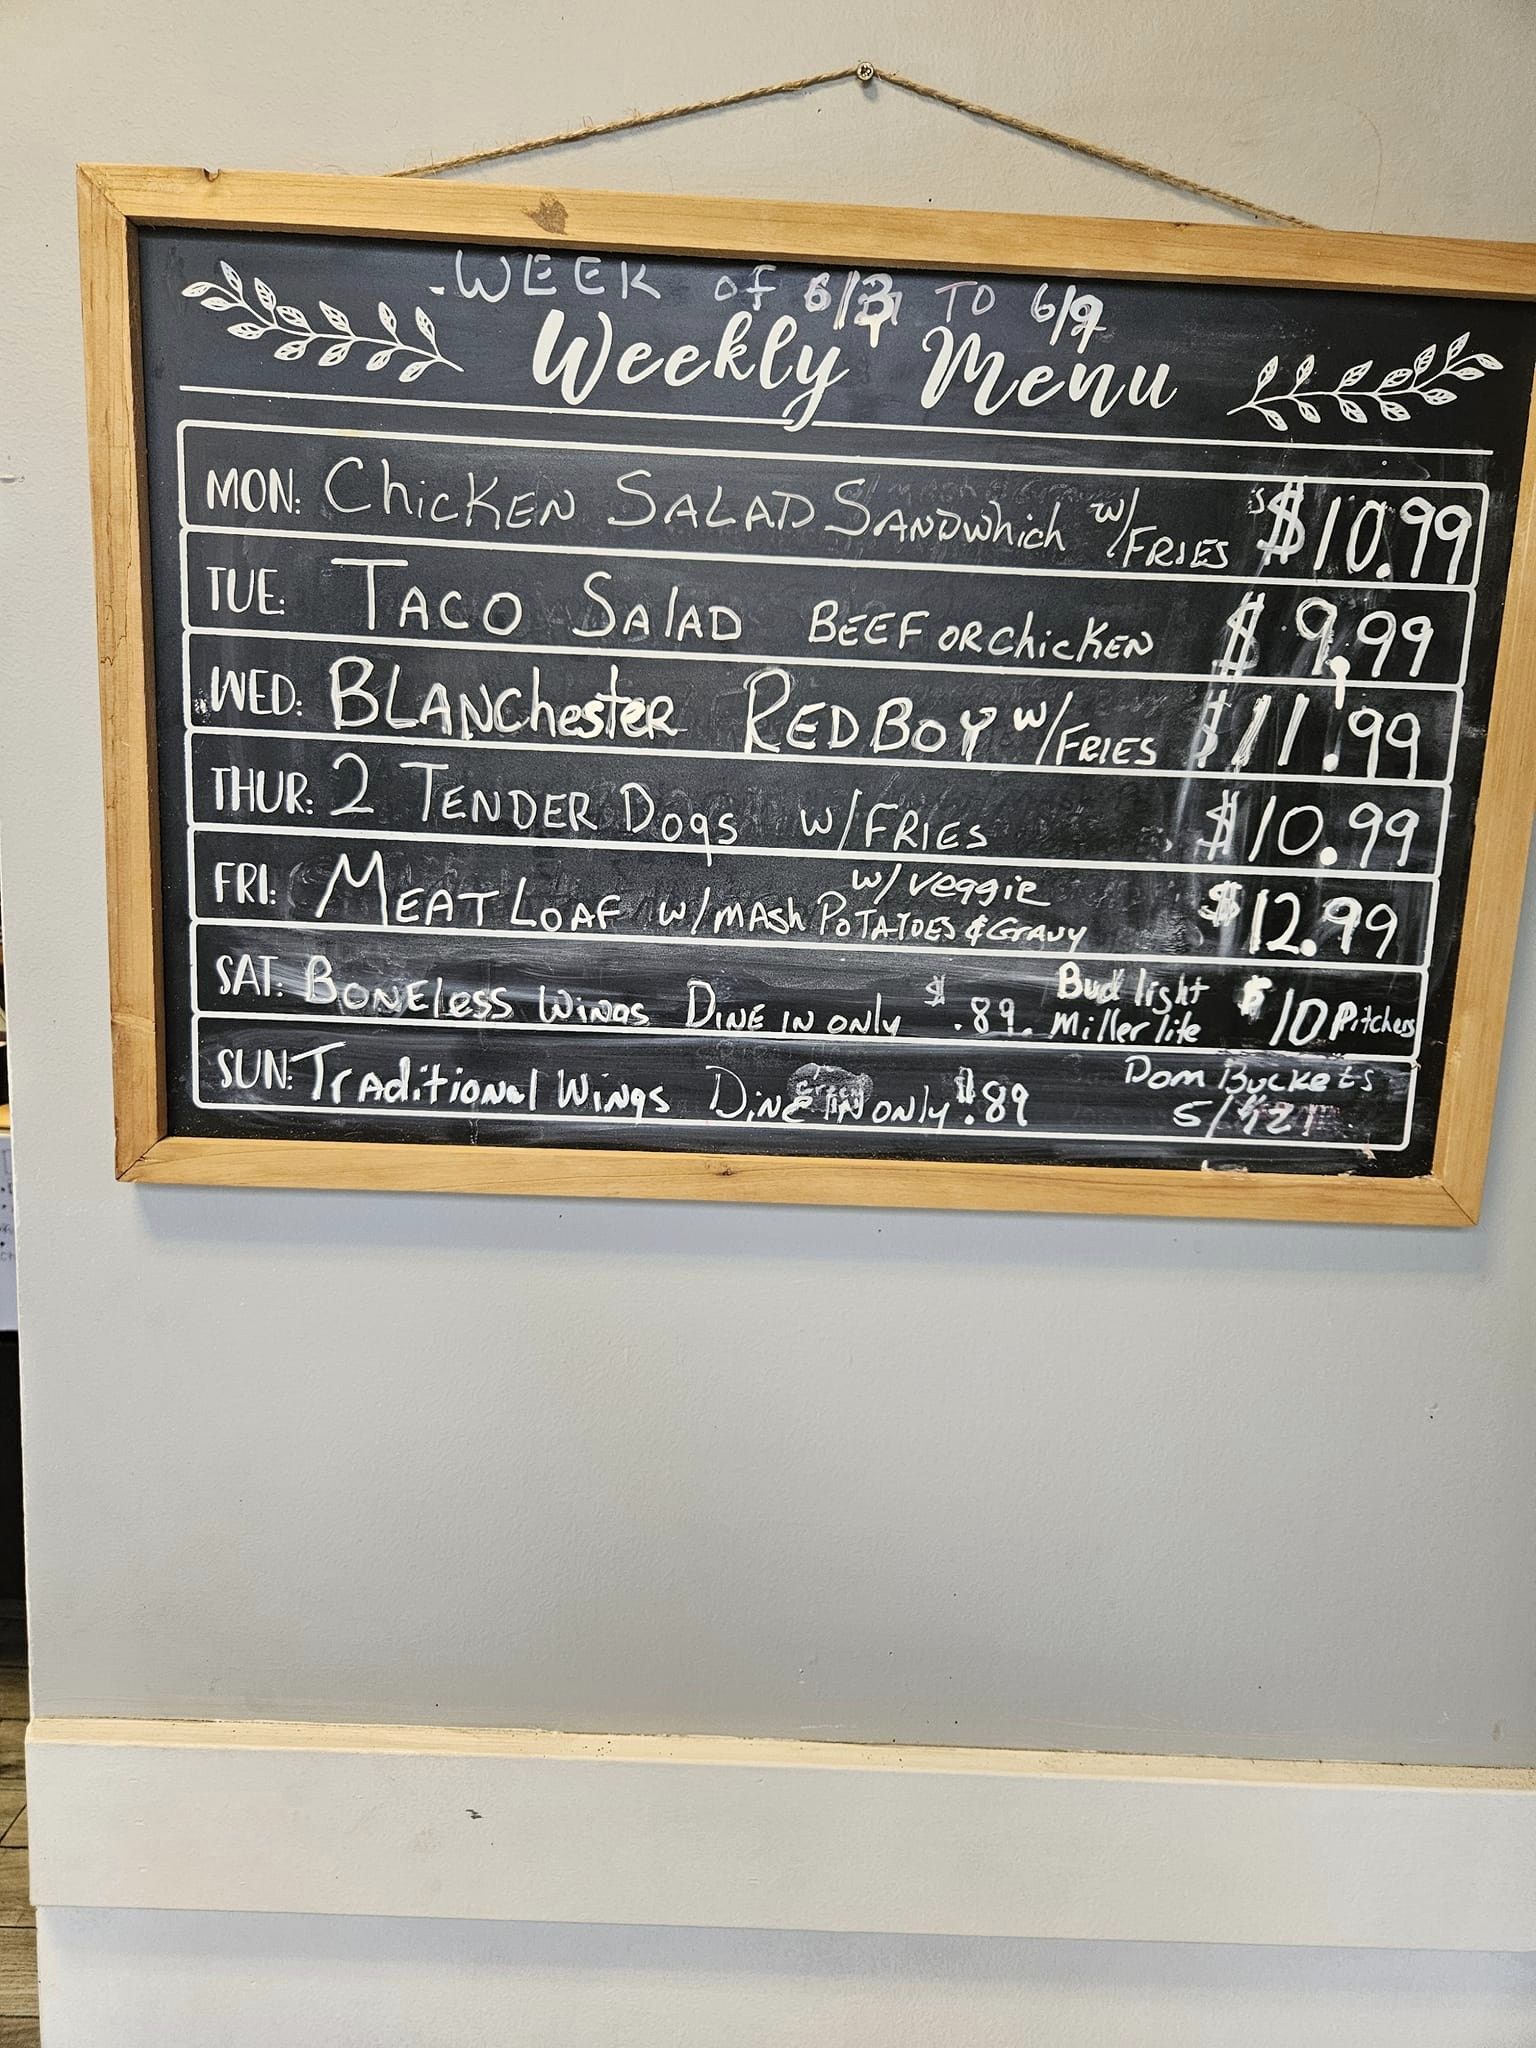 WEEK OF 6/3 TO 6/9
Weekly Menu
MON: Chicken SALAD SANDWhich w/FRIES $10.99
TUE: TACO SAlAD BEEF OR ChicKEN $9.99
WED: BLANChester RED BOY w/FRIES $11.99
THUR: 2 TENDER Dogs W/FRIES $10.99
FRI: MEAT LOAF w/ MASh POTATOES & GRAVY w/ veggie $12.99
SAT: BONEless WINGS DINE IN ONly $ .89. Bud light Miller lite $10 Pitchers
SUN: TrAditioNAl WINgs DINE IN ONly $.89 Dom BUCKETS
5/$